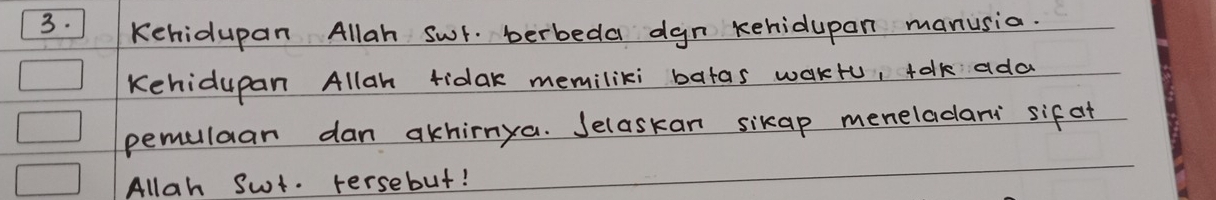 3. Kehidupan Allah swt. berbeda dgn kehidupan manusia.
Kehidupan Allah tidak memiliki batas waktu, tdk ada
pemulaan dan akhirnya. Jelaskan sikap meneladani sifat
Allah Swt. tersebut!